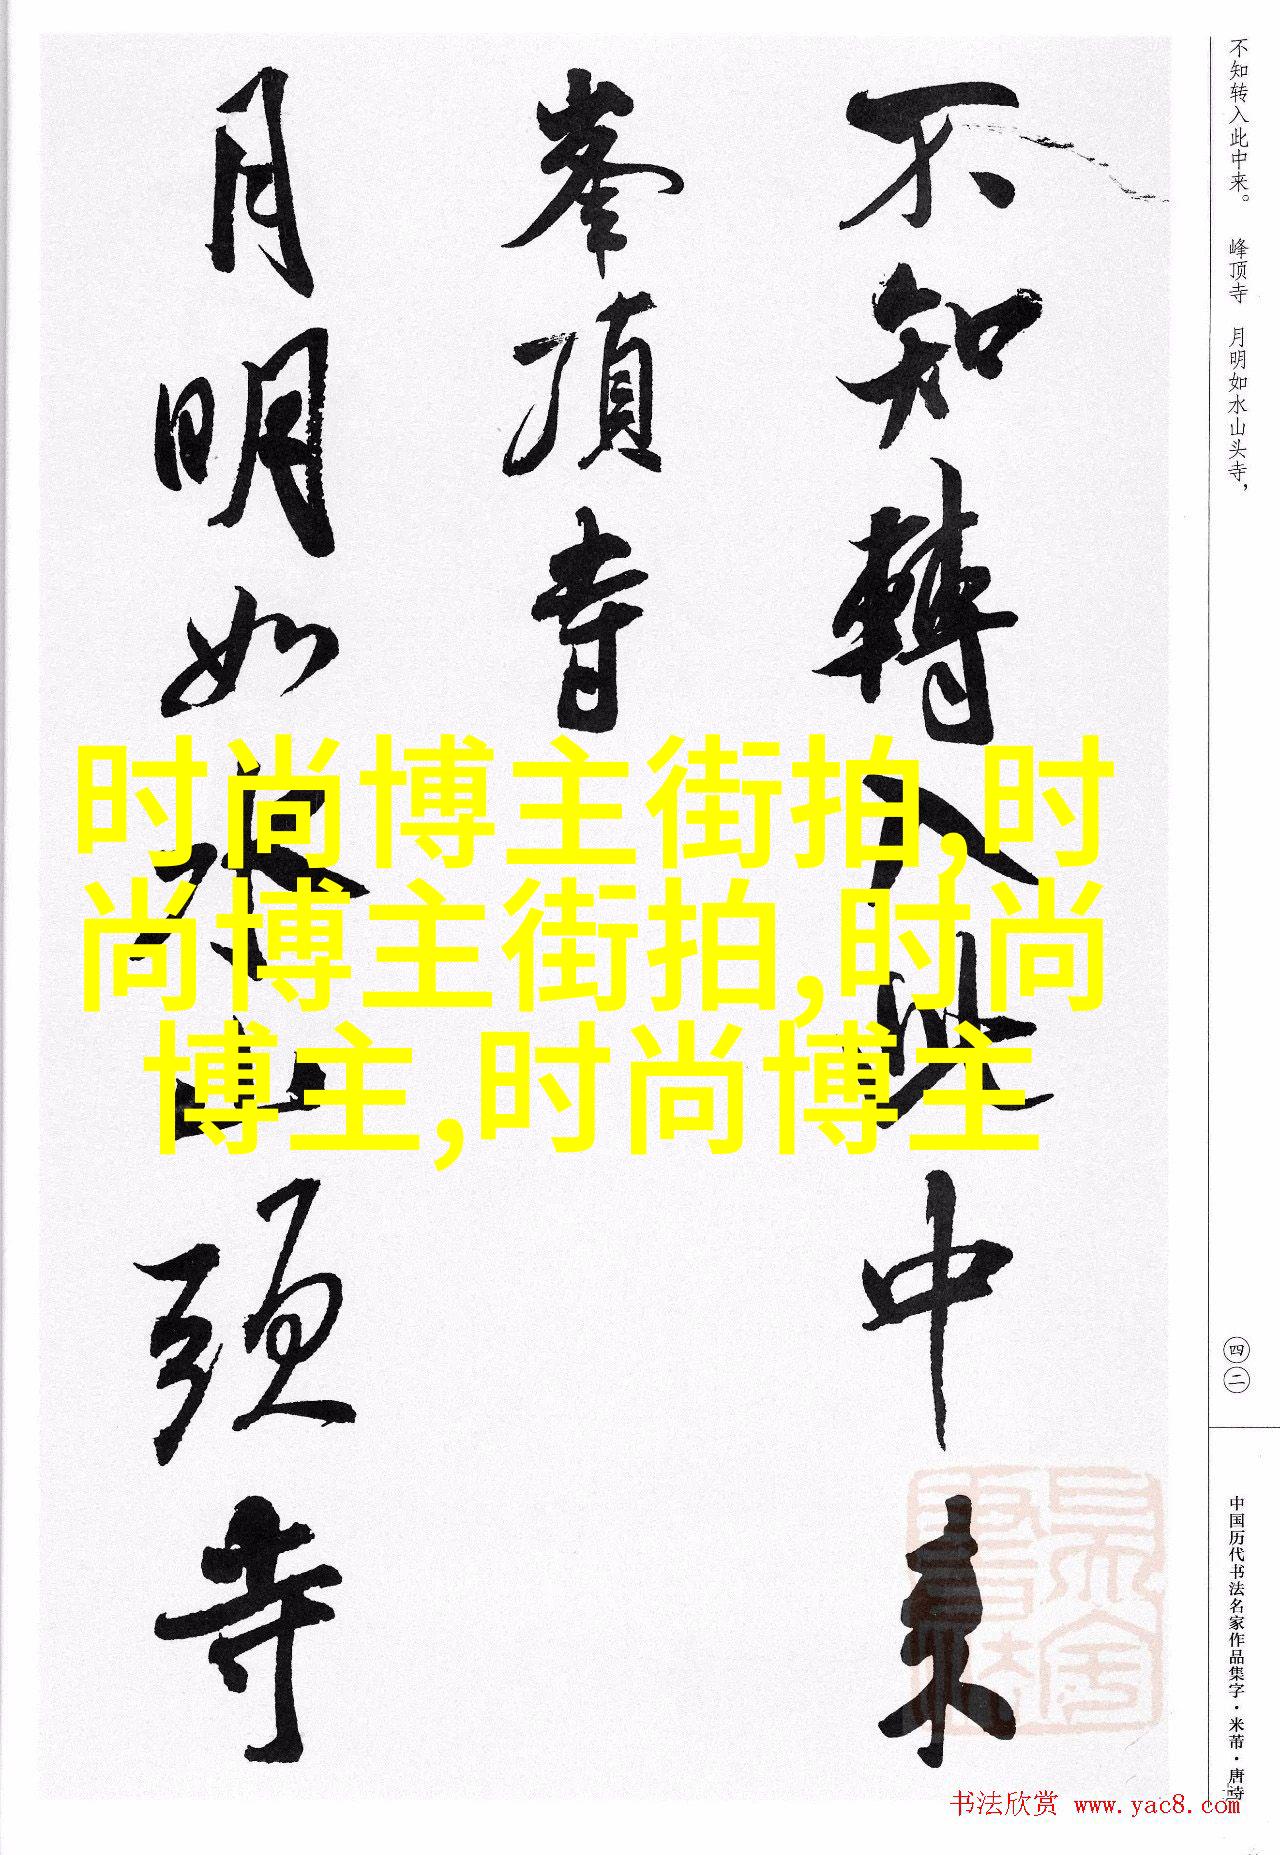 不知轉入此中来
峯頂寺
月明如水山頭寺
时尚博主街拍,时
尚博主街拍,时尚
博主,时尚博主
不知转入此中来。 峰顶寺 月明如水山头寺，
四二
中国历代书法名家作品集字·米芾·唐诗
书法欣赏 www.yac8.com